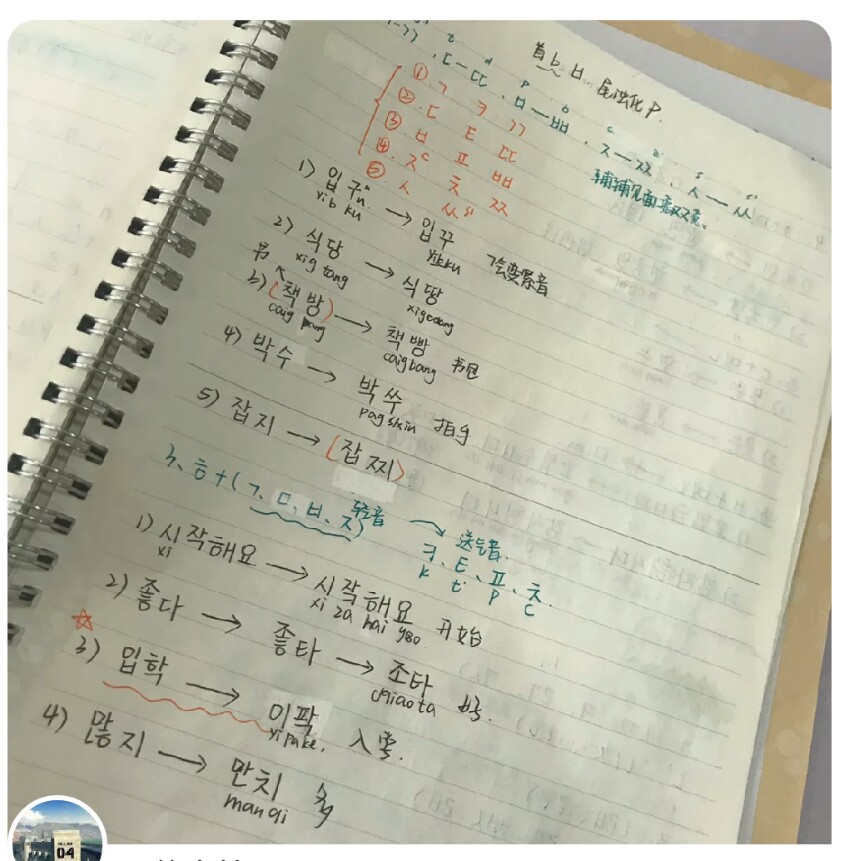 首 b ㅂ 尾浊化 P.
ㄷ—ㄸ, ㅂ—ㅃ, ㅈ—ㅉ, ㅅ—ㅆ
① ㄱ ㅋ ㄲ
② ㄷ ㅌ ㄸ
③ ㅂ ㅍ ㅃ
④ ㅈ ㅊ ㅉ
⑤ ㅅ ㅆ
辅辅见面
1) 입구 → 입꾸 会变紧音
yib ku yibku
2) 식당 → 식땅
xig tang
书
3) (책방) → 책빵 书包
caig bang caigbang
4) 박수 → 박쑤 拍手
5) 잡지 → (잡찌)
3、ㅎ + (ㄱ、ㅁ、ㅂ、ㅈ) 轻音 → 送气音
ㅋ、ㅌ、ㅍ、ㅊ.
k t p c
1) 시작해요 → 시작해요 开始
xi xi za hai yao
2) 좋다 → 좋타 → 조타 好.
chiaota
☆
3) 입학 → 이팍 入学.
yipake.
4) 많지 → 만치 多
manqi
04